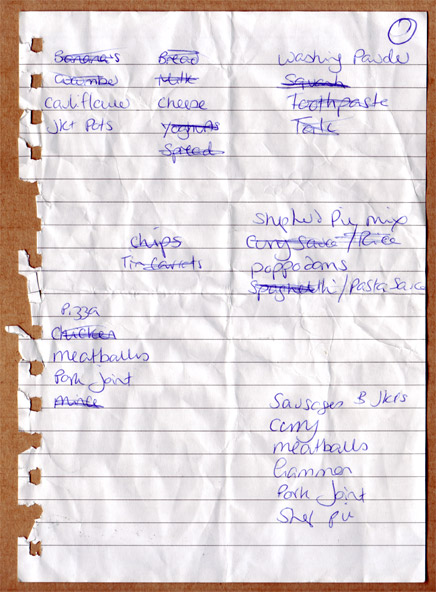 1
Banana's
Cucumber
Cauliflower
Jkt Pots
Bread
Milk
Cheese
Yoghurts
Spread
Washing Powder
Squash
Toothpaste
Talc
Chips
Tin Carrots
Shepherd Pie mix
Curry Sauce / Rice
Poppodoms
Spaghetti / Pasta Sauce
Pizza
Chicken
Meatballs
Pork Joint
Mince
Sausages & Jkts
Curry
Meatballs
Gammon
Pork Joint
Shep Pie